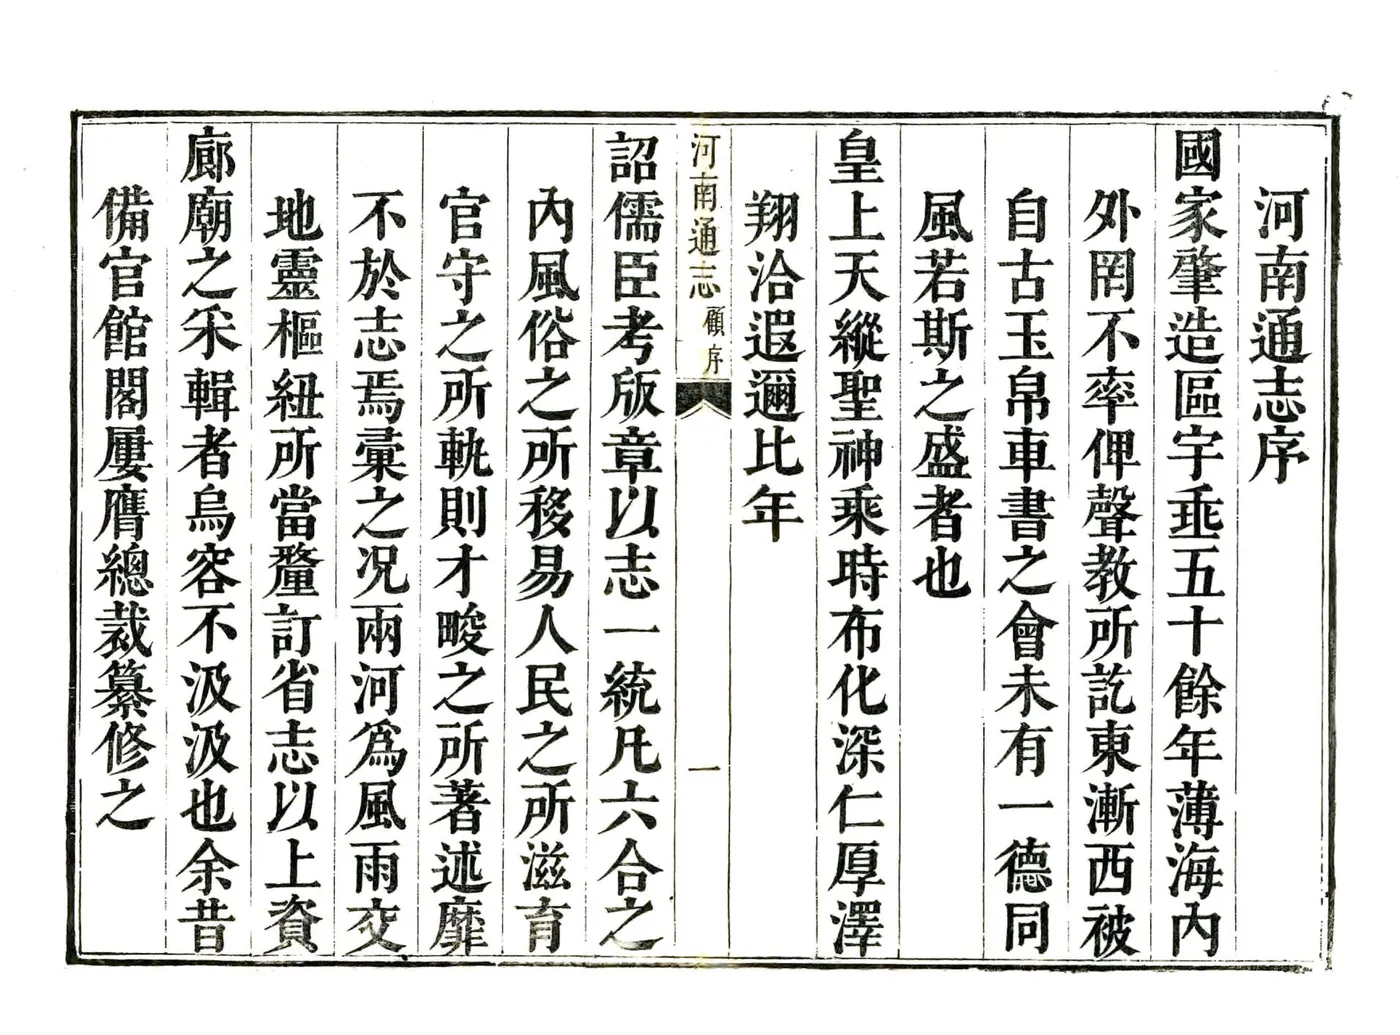 河南通志序
國家肇造區宇垂五十餘年薄海內
外罔不率俾聲教所訖東漸西被
自古玉帛車書之會未有一德同
風若斯之盛者也
皇上天縱聖神乘時布化深仁厚澤
翔洽遐邇比年
河南通志 顧序 一
詔儒臣考版章以志一統凡六合之
內風俗之所移易人民之所滋育
官守之所軌則才畯之所著述靡
不於志焉彙之况兩河爲風雨交
地靈樞紐所當釐訂省志以上資
廊廟之采輯者烏容不汲汲也余昔
備官館閣屢膺總裁纂修之